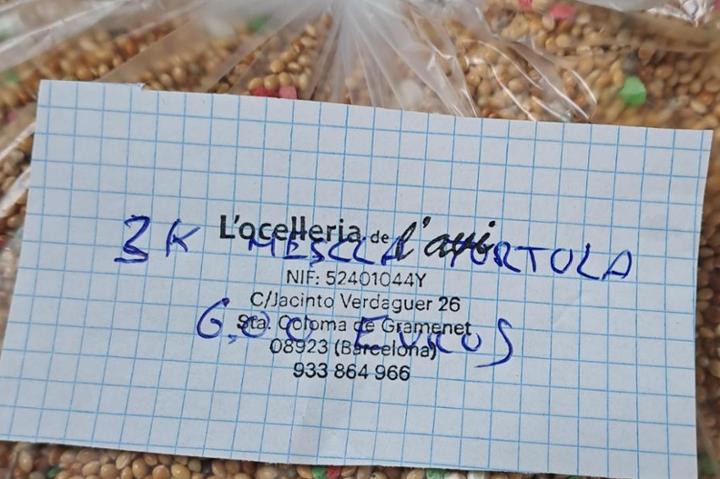 L'ocelleria de l'avi
3 K MESCLA TORTOLA
NIF: 52401044Y
C/Jacinto Verdaguer 26
6,00 EUROS
Sta. Coloma de Gramenet
08923 (Barcelona)
933 864 966